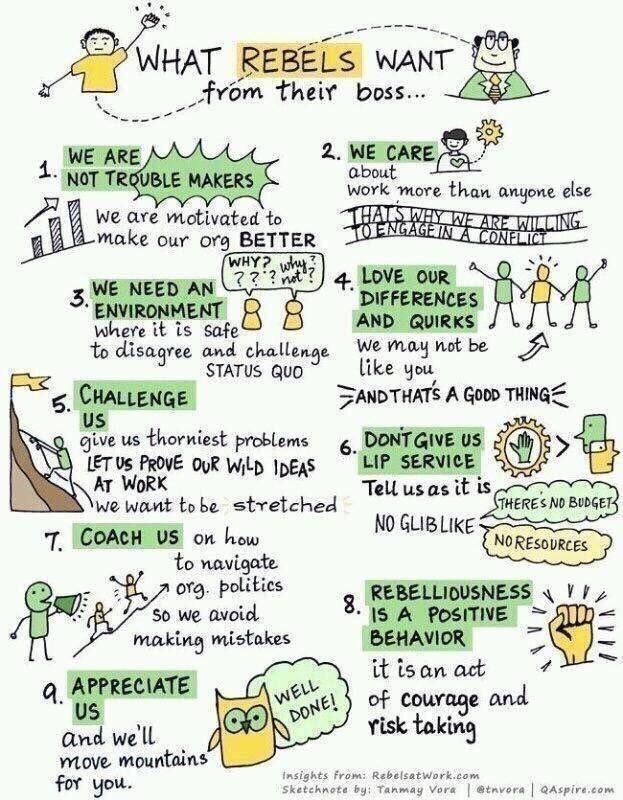 WHAT REBELS WANT
from their boss...
1. WE ARE
NOT TROUBLE MAKERS
we are motivated to
make our org BETTER
2. WE CARE
about
work more than anyone else
THAT'S WHY WE ARE WILLING
TO ENGAGE IN A CONFLICT
3. WE NEED AN
ENVIRONMENT
where it is safe
to disagree and challenge
STATUS QUO
WHY? why?
? ? ' ? not ?
4. LOVE OUR
DIFFERENCES
AND QUIRKS
we may not be
like you
AND THAT'S A GOOD THING
5. CHALLENGE
US
give us thorniest problems
LET US PROVE OUR WILD IDEAS
AT WORK
we want to be stretched
6. DON'T GIVE US
LIP SERVICE
Tell us as it is
NO GLIB LIKE
THERE'S NO BUDGET
NO RESOURCES
7. COACH US on how
to navigate
org. politics
so we avoid
making mistakes
8. REBELLIOUSNESS
IS A POSITIVE
BEHAVIOR
it is an act
of courage and
risk taking
9. APPRECIATE
US
and we'll
move mountains
for you.
WELL
DONE!
Insights from: RebelsatWork.com
Sketchnote by: Tanmay Vora | @tnvora | QAspire.com